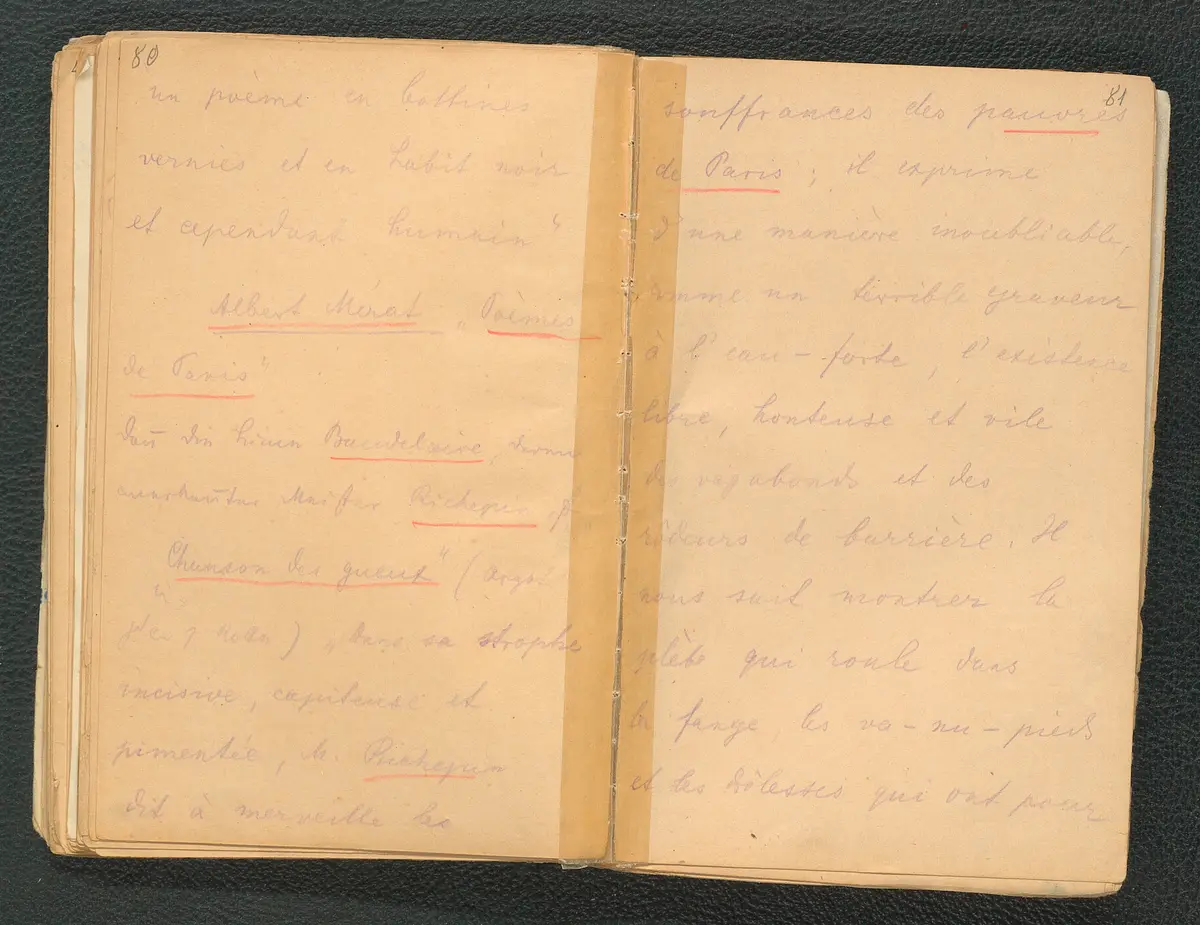 80
un poème en bottines
vernies et en habit noir
et cependant humain"
Albert Mérat „Poèmes
de Paris"
Baudelaire,
Meister Richepin
Chanson des gueux" (argot
) „dans sa strophe
incisive, capiteuse et
pimentée, M. Richepin
dit à merveille les
81
souffrances des pauvres
de Paris ; il exprime
d'une manière inoubliable,
comme un terrible graveur
à l'eau-forte, l'existence
libre, honteuse et vile
des vagabonds et des
rôdeurs de barrière. Il
nous sait montrer la
plèbe qui roule dans
la fange, les va-nu-pieds
et les drôlesses qui ont pour